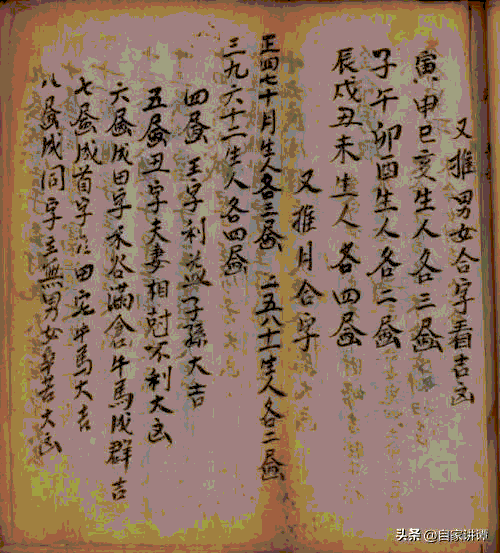 又推男女合字看吉凶
寅申巳亥生人各三昼
子午卯酉生人各二昼
辰戌丑未生人各四昼
又推月合字
正四七十月生人各三昼 二五八十一生人各二昼
三九六十二生人各四昼
四昼王字利益子孫大吉
五昼丑字夫妻相尅不利大凶
六昼成田字禾谷滿倉牛馬成群吉
七昼成首字田宅牛馬大吉
八昼成同字主無男女辛苦大凶
头条 @自家讲谭